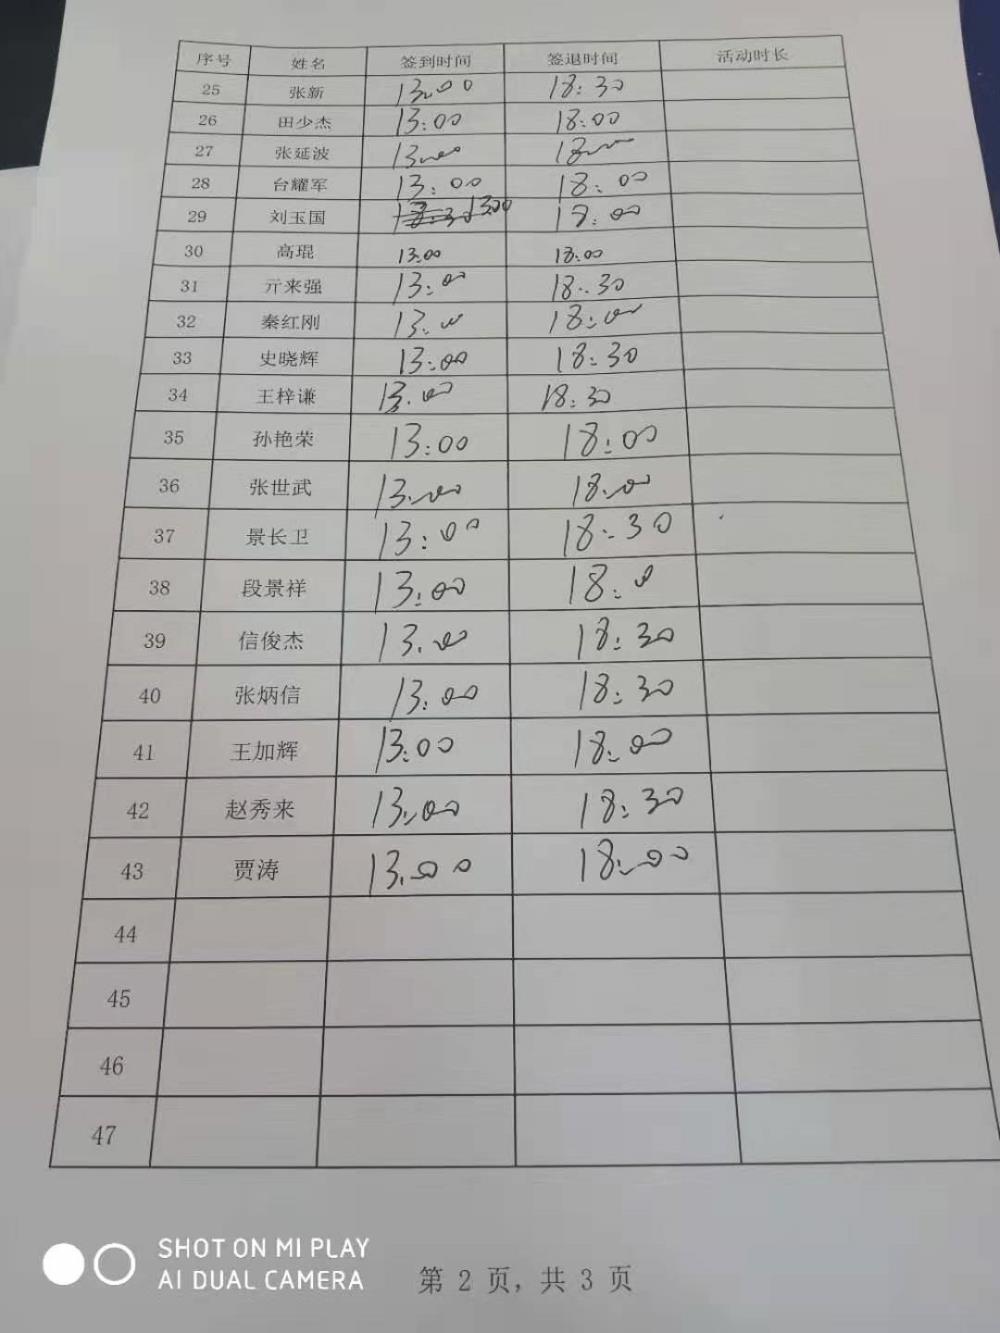 序号 姓名 签到时间 签退时间 活动时长
25 张新 13:00 18:30
26 田少杰 13:00 18:00
27 张延波 13:00
28 台耀军 13:00 18:00
29 刘玉国 13:00 18:00
30 高琨 13:00 18:00
31 亓来强 13:00 18:30
32 秦红刚 13:00 18:00
33 史晓辉 13:00 18:30
34 王梓谦 13:00 18:30
35 孙艳荣 13:00 18:00
36 张世武 13:00 18:00
37 景长卫 13:00 18:30
38 段景祥 13:00 18:0
39 信俊杰 13:00 18:30
40 张炳信 13:00 18:30
41 王加辉 13:00 18:00
42 赵秀来 13:00 18:30
43 贾涛 13:00 18:00
44
45
46
47
SHOT ON MI PLAY
AI DUAL CAMERA
第 2 页，共 3 页